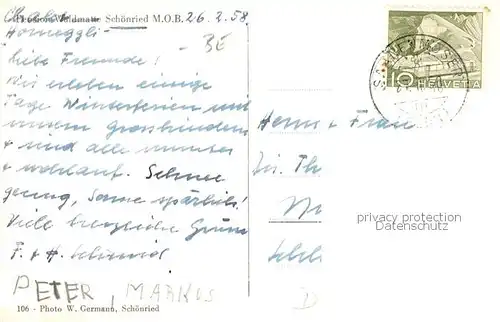 Pension Waldmatte Schönried M.O.B. 26.2.58
Chalet
Horneggli
BE
Liebe Freunde!
Wir erleben einige
Tage Winterferien mit
unseren Grosskindern
& sind alle munter
& wohlauf. Schnee
genug, Sonne spärlich!
Viele herzliche Grüsse
F. & H.
PETER, MARKUS
106 - Photo W. Germann, Schönried
10 HELVETIA
SAANENMÖSER
Herrn & Frau
privacy protection
Datenschutz
D